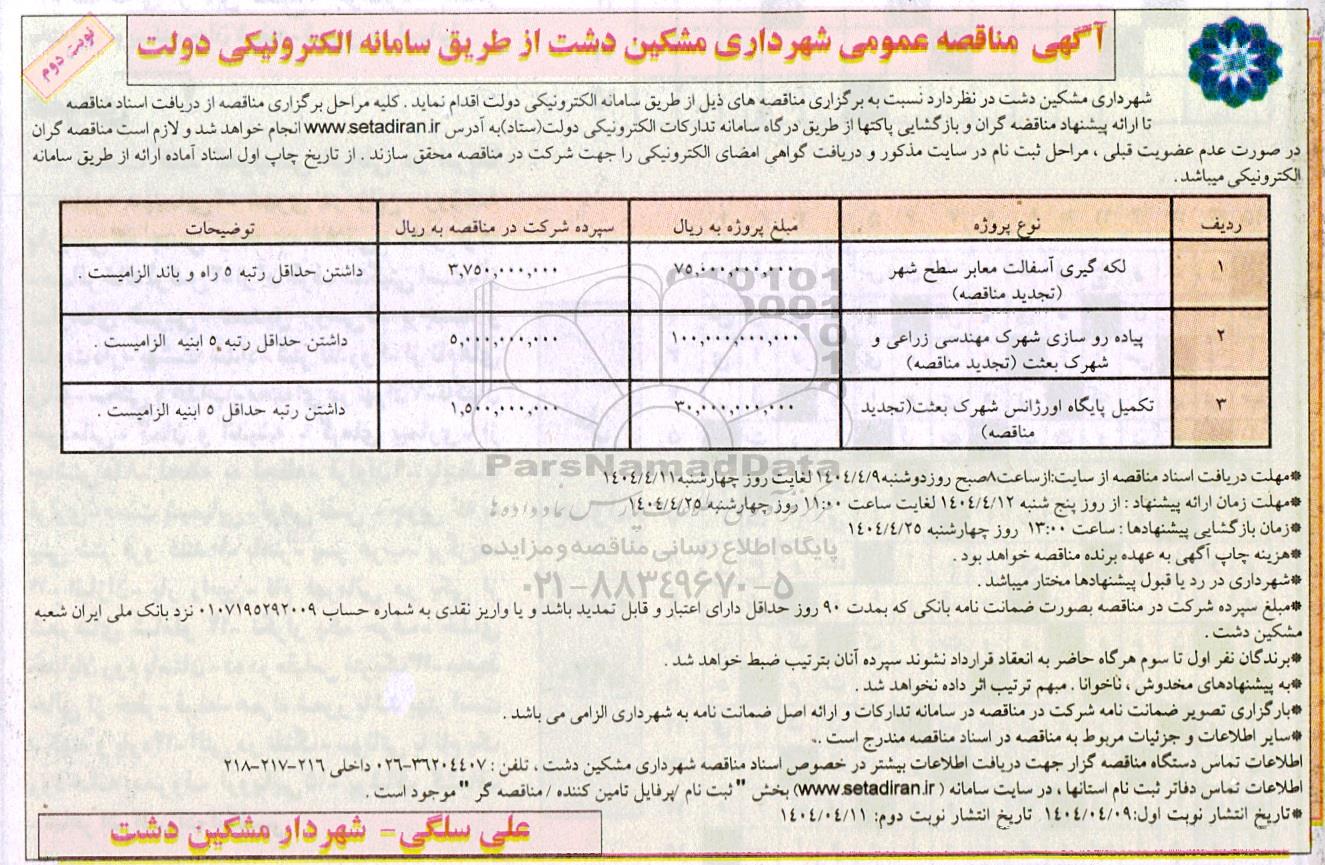 آگهی مناقصه عمومی شهرداری مشکین دشت از طریق سامانه الکترونیکی دولت
نوبت دوم
شهرداری مشکین دشت در نظر دارد نسبت به برگزاری مناقصه های ذیل از طریق سامانه الکترونیکی دولت اقدام نماید . کلیه مراحل برگزاری مناقصه از دریافت اسناد مناقصه
تا ارائه پیشنهاد مناقصه گران و بازگشایی پاکتها از طریق درگاه سامانه تدارکات الکترونیکی دولت(ستاد)به آدرس www.setadiran.ir انجام خواهد شد و لازم است مناقصه گران
در صورت عدم عضویت قبلی ، مراحل ثبت نام در سایت مذکور و دریافت گواهی امضای الکترونیکی را جهت شرکت در مناقصه محقق سازند . از تاریخ چاپ اول اسناد آماده ارائه از طریق سامانه
الکترونیکی میباشد .
ردیف نوع پروژه مبلغ پروژه به ریال سپرده شرکت در مناقصه به ریال توضیحات
۱ لکه گیری آسفالت معابر سطح شهر ۷۵,۰۰۰,۰۰۰,۰۰۰ ۳,۷۵۰,۰۰۰,۰۰۰ داشتن حداقل رتبه ۵ راه و باند الزامیست .
(تجدید مناقصه)
۲ پیاده رو سازی شهرک مهندسی زراعی و ۱۰۰,۰۰۰,۰۰۰,۰۰۰ ۵,۰۰۰,۰۰۰,۰۰۰ داشتن حداقل رتبه ۵ ابنیه الزامیست .
شهرک بعثت (تجدید مناقصه)
۳ تکمیل پایگاه اورژانس شهرک بعثت(تجدید ۳۰,۰۰۰,۰۰۰,۰۰۰ ۱,۵۰۰,۰۰۰,۰۰۰ داشتن رتبه حداقل ۵ ابنیه الزامیست .
مناقصه)
ParsNamadData
*مهلت دریافت اسناد مناقصه از سایت:ازساعت۸صبح روزدوشنبه۱۴۰۴/۴/۹ لغایت روز چهارشنبه۱۴۰۴/۴/۱۱
*مهلت زمان ارائه پیشنهاد : از روز پنج شنبه ۱۴۰۴/۴/۱۲ لغایت ساعت ۱۱:۰۰ روز چهارشنبه ۱۴۰۴/۴/۲۵
*زمان بازگشایی پیشنهادها : ساعت ۱۳:۰۰ روز چهارشنبه ۱۴۰۴/۴/۲۵
پایگاه اطلاع رسانی مناقصه و مزایده
*هزینه چاپ آگهی به عهده برنده مناقصه خواهد بود .
*شهرداری در رد یا قبول پیشنهادها مختار میباشد .
۰۲۱-۸۸۳۴۹۶۷۰-۵
*مبلغ سپرده شرکت در مناقصه بصورت ضمانت نامه بانکی که بمدت ۹۰ روز حداقل دارای اعتبار و قابل تمدید باشد و یا واریز نقدی به شماره حساب ۰۱۰۷۱۹۵۲۹۲۰۰۹ نزد بانک ملی ایران شعبه
مشکین دشت .
*برندگان نفر اول تا سوم هرگاه حاضر به انعقاد قرارداد نشوند سپرده آنان بترتیب ضبط خواهد شد .
*به پیشنهادهای مخدوش ، ناخوانا . مبهم ترتیب اثر داده نخواهد شد .
*بارگزاری تصویر ضمانت نامه شرکت در مناقصه در سامانه تدارکات و ارائه اصل ضمانت نامه به شهرداری الزامی می باشد .
*سایر اطلاعات و جزئیات مربوط به مناقصه در اسناد مناقصه مندرج است .
اطلاعات تماس دستگاه مناقصه گزار جهت دریافت اطلاعات بیشتر در خصوص اسناد مناقصه شهرداری مشکین دشت ، تلفن : ۳۶۲۰۴۴۰۷-۰۲۶ داخلی ۲۱۶-۲۱۷-۲۱۸
اطلاعات تماس دفاتر ثبت نام استانها ، در سایت سامانه ( www.setadiran.ir) بخش " ثبت نام /پرفایل تامین کننده /مناقصه گر "موجود است .
*تاریخ انتشار نوبت اول:۱۴۰۴/۰۴/۰۹ تاریخ انتشار نوبت دوم: ۱۴۰۴/۰۴/۱۱
علی سلگی- شهردار مشکین دشت